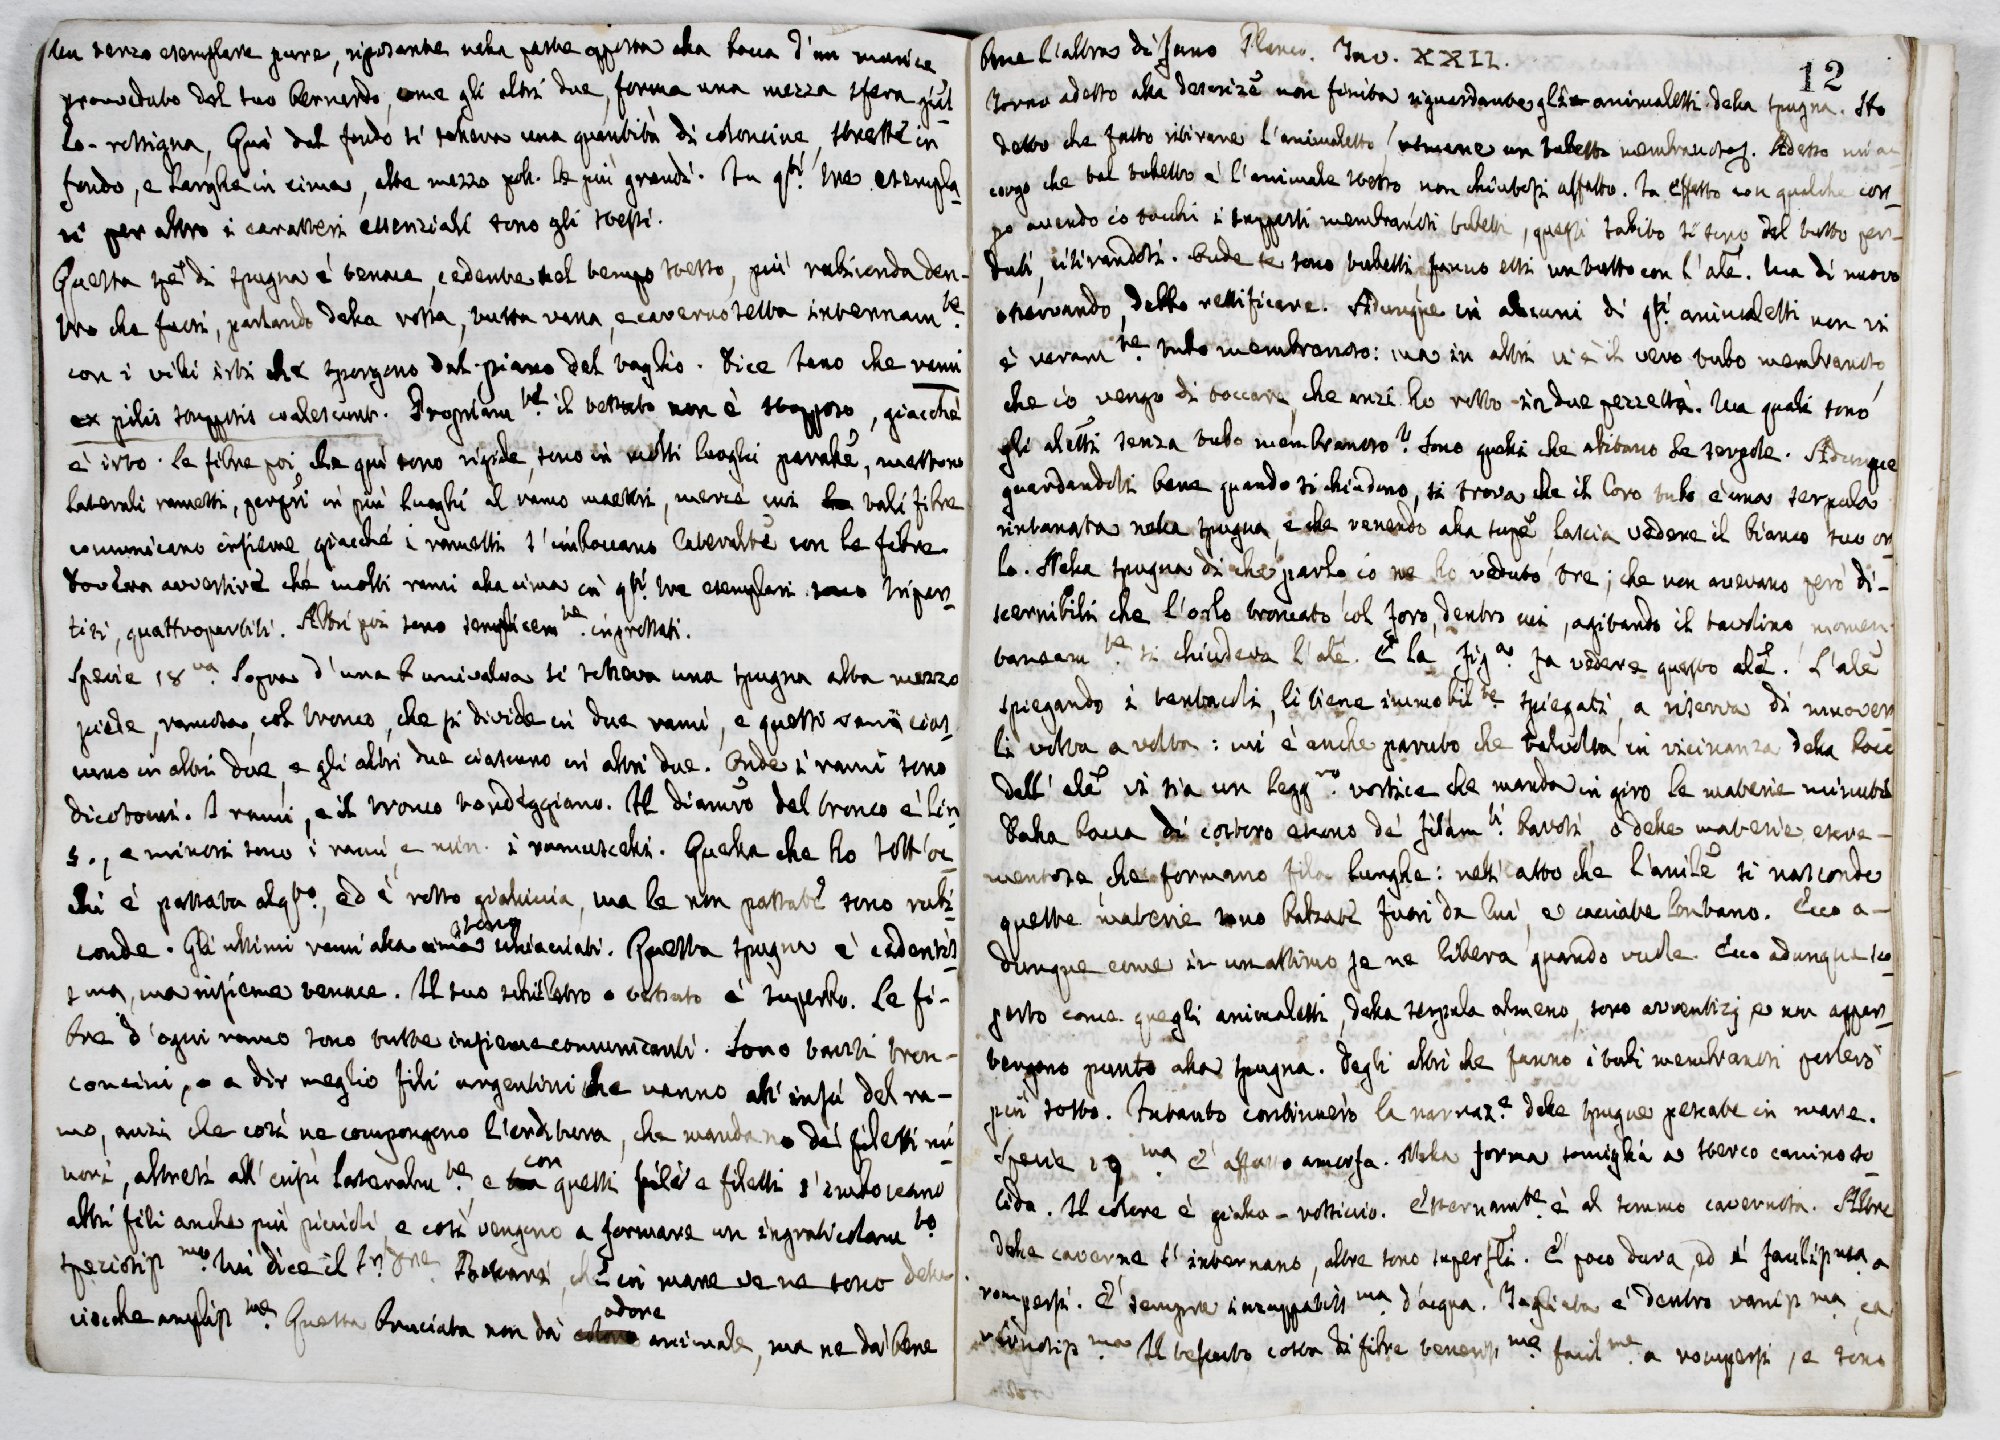 Un terzo esemplare pure, riposante nella parte opposta alla bocca d'un murice
provveduto del suo Bernardo, come gli altri due, forma una mezza sfera gial
lo-rossigna, Qui dal fondo si solleva una quantità di coloncine, strette in
fondo, e larghe in cima, alte mezzo poll. le più grandi. In qsti tre esempla
ri per altro i caratteri essenziali sono gli stessi.
Questa spe di spugna è tenace, cedente nel tempo stesso, più rubiconda den-
tro che fuori, parlando della rossa, tutta vana, e cavernosetta internamte
con i vili irti che sporgono dal piano del taglio. Dice Jano che rami
ex pilis stupposis coalescunt. Propriamte il tessuto non è stopposo, giacchè
è irto. Le fibre poi che qui sono rigide, sono in molti luoghi paralle, mettono
laterali rametti, in più luoghi al ramo maestri, mercè cui tali fibre
comunicano insieme giacchè i rametti s'imboccano con le fibre.
Doveva avvertire che molti rami alla cima in qsti tre esemplari sono tripar
titi, quattropartiti. Altri poi sono semplicemte ingrossati.
Specie 18va Sopra d'una univalva si solleva una spugna alta mezzo
piede, ramosa, col tronco, che si divide in due rami, e questi rami cias
cuno in altri due, e gli altri due ciascuno in altri due. Onde i rami sono
dicotomi. I rami, e il tronco tondeggiano. Il diamro del tronco è lin
5., e minori sono i rami e min. i ramuscelli. Quella che ho sott'oc
chi è passata alqto, ed è rosso gialiccia, ma le non passate sono rubi
conde. Gli ultimi rami alla cima sono schiacciati. Questa spugna è cedentis
sma, ma insieme tenace. Il suo scheletro o tessuto è superbo. Le fi-
bre d'ogni ramo sono tutte insieme comunicanti. Sono tanti tron-
concini, o a dir meglio fili argentini che vanno all'insù del ra-
mo, anzi che così ne compongono l'orditura, che mandano dei filetti mi
nori, altresì all'insù lateralmte e con questi fili e filetti s'imboccano
altri fili anche più piccoli e così vengono a formare un ingraticolamto
speciosissmo Mi dice il Sr che in mare ve ne sono delle
ciocche amplissme Questa bruciata non dà odore animale, ma ne dà bene
bene l'altra di Jano Planco. Tav. XXII.
12
Torno adesso alla descrize non finita riguardante gli animaletti della spugna. Ho
detto che fatto ritirare l'animaletto, rimane un tubetto membranoso. Adesso mi ac
corgo che tal tubetto è l'animale stesso non chiusosi affatto. In effetto con qualche cor
po avendo io tocchi i supposti membranosi tubetti, questi subito si sono del tutto per-
duti, ritirandosi. Onde se sono tubetti fanno essi un tutto con l'ale. Ma di nuovo
osservando, debbo rettificare. Adunque in alcuni di qsti animaletti non vi
è veramte tubo membranoso: ma in altri vi è il vero tubo membranoso
che io vengo di toccare, che anzi ho rotto in due pezzetti. Ma quali sono
gli aletti senza tubo membranoso? Sono quelli che abitano le serpole. Adunque
guardandoli bene quando si chiudono, si trova che il loro tubo è una serpula
intanata nella spugna, e che venendo alla supe lascia vedere il bianco suo or
lo. Nella spugna di che parlo io ne ho veduto tre; che non avevano però di-
scernibili che l'orlo troncato col foro, dentro cui, agitando il tavolino momen
taneamte si chiudeva l'ale. E la figa fa vedere questo ale. L'ale
spiegando i tentacoli, li tiene immobilte spiegati, a riserva di muover
li volta a volta: mi è anche paruto che talvolta in vicinanza della bocc
dell'ale vi sia un leggro vortice che manda in giro le materie minute
Dalla bocca di costoro escono dei filamti tavolti o delle materie escre-
mentose che formano fila lunghe: nell'atto che l'anile si nasconde
queste materie sono balzate fuori da lui, e cacciate lontano. Ecco a-
dunque come in un attimo se ne libera quando vuole. Ecco adunque sco
perto come quegli animaletti, della serpula almeno, sono avventizj e non appar
tengono punto alla spugna. Degli altri che fanno i tubi membranosi parlerò
più sotto. Intanto continuerò la narraze delle spugne pescate in mare.
Specie 19ma È affatto amorfa. Nella forma somiglia a sterco canino so
lido. Il colore è giallo-rossiccio. Esternamte è al sommo cavernosa. Altre
delle caverne s'internano, altre sono superfli. È poco dura, ed è facilissma a
rompersi. È sempre inzuppatissma d'acqua. Tagliata è dentro vanissma, ca
vernosissma Il tessuto costa di fibre teneriss.me facilme a rompersi, e sono